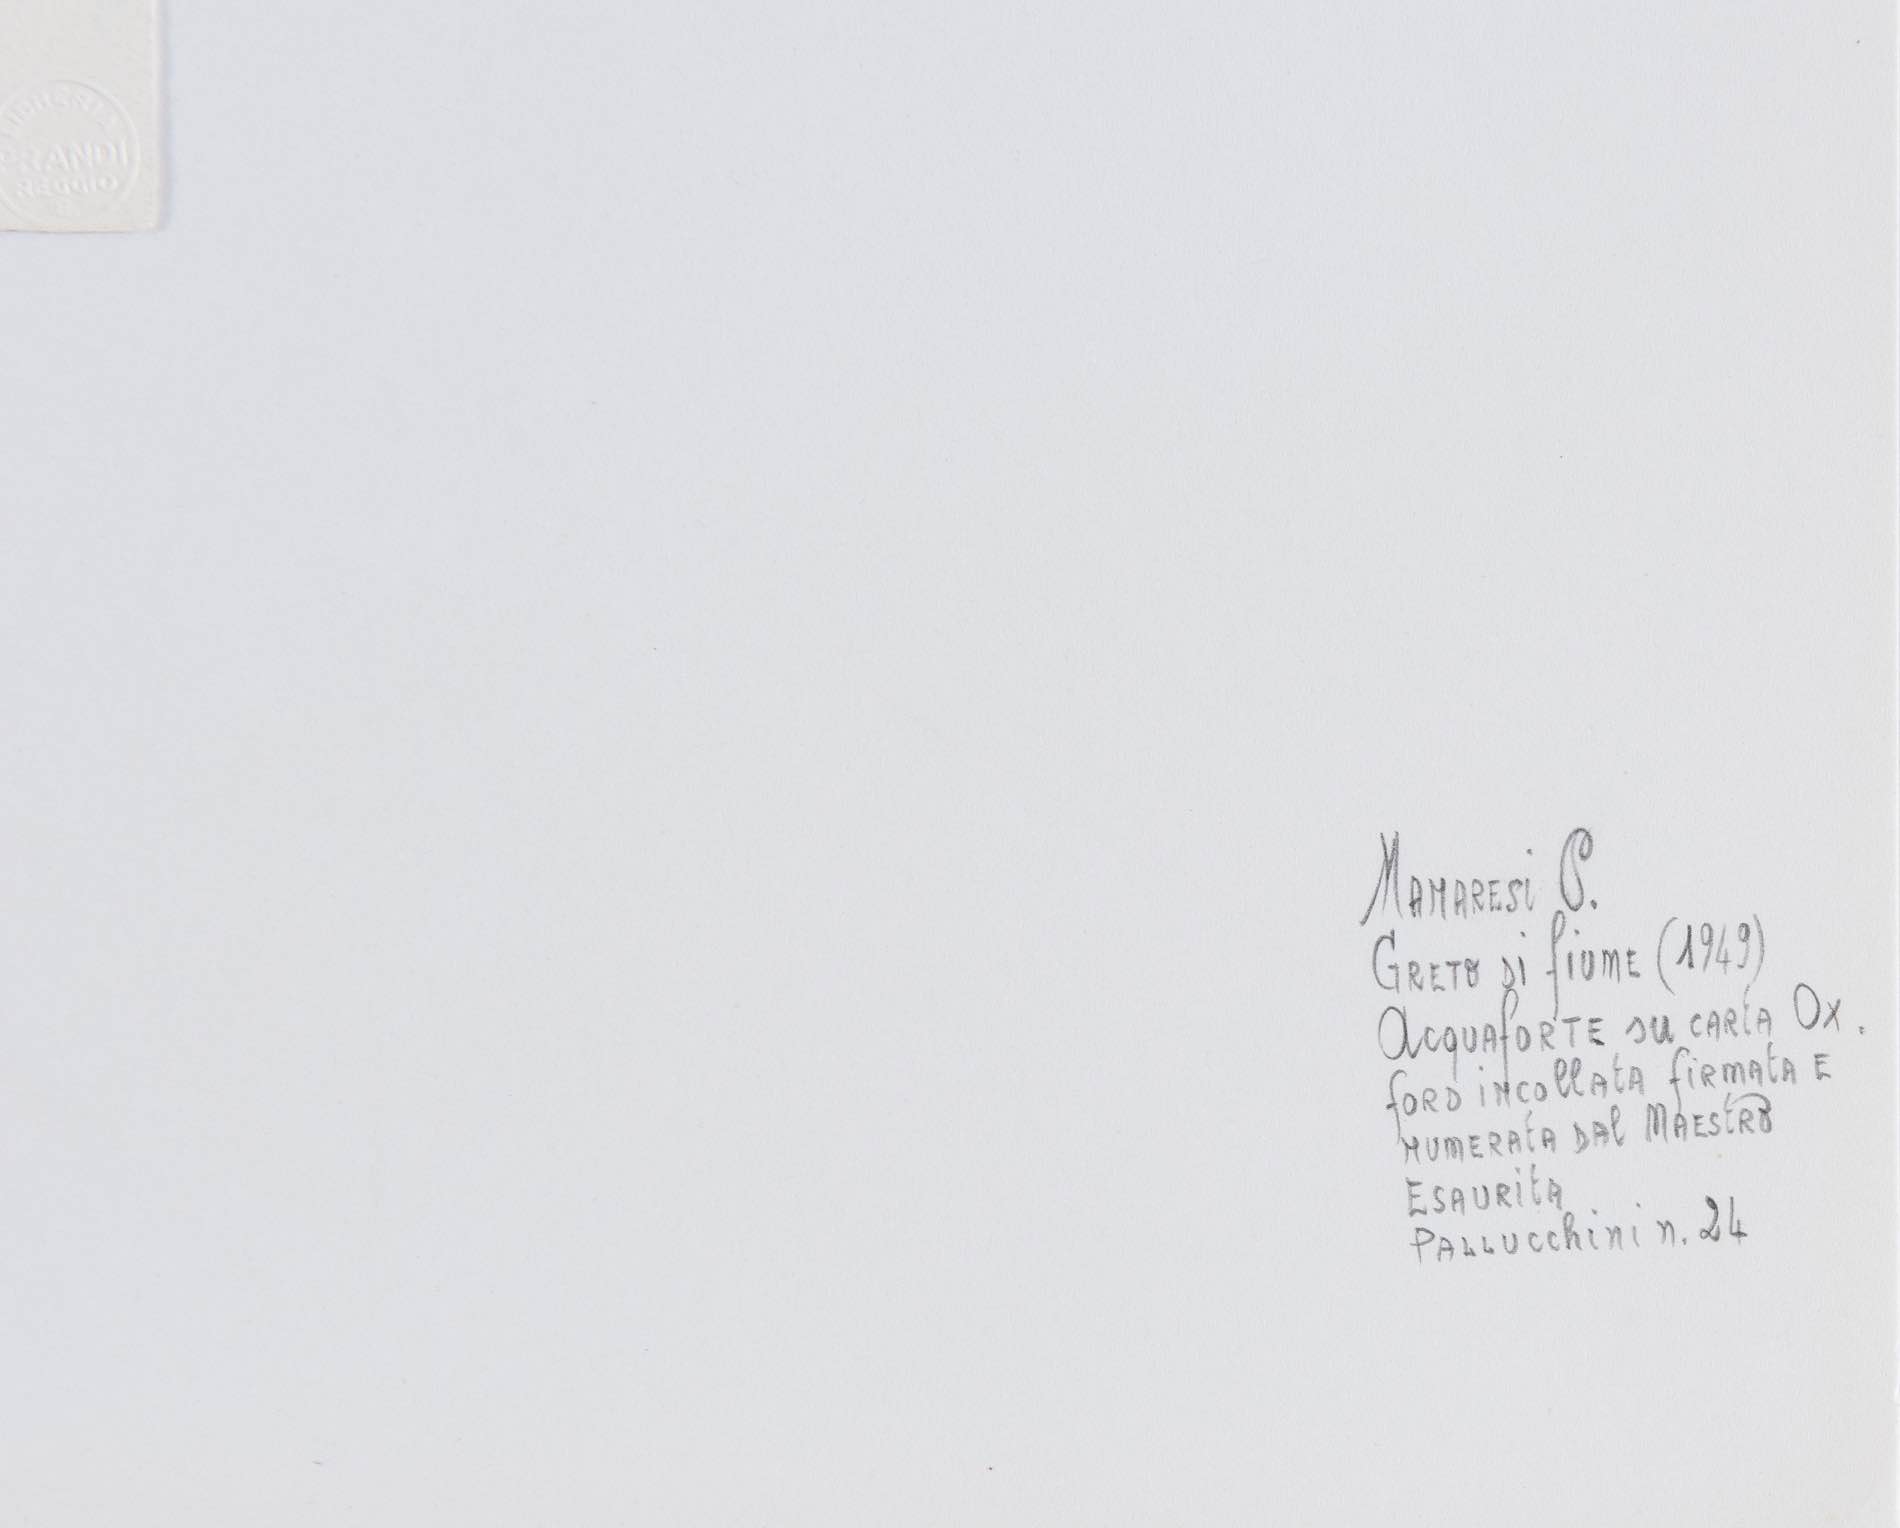 LIBRERIA
PRANDI
REGGIO
MANARESI P.
GRETO DI fiUME (1949)
ACQUAfORTE su CARtA Ox.
fORD iNCollAtA fiRMAtA E
NUMERAtA DAl MAEStRO
ESAURItA
PALLUCChini n. 24